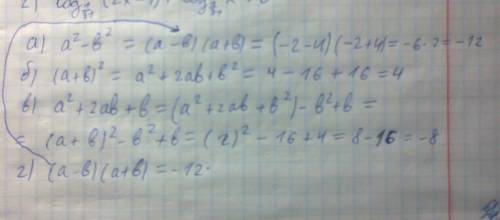 а) a² - b² = (a-b)(a+b) = (-2-4)(-2+4) = -6·2 = -12
б) (a+b)² = a² + 2ab + b² = 4 - 16 + 16 = 4
в) a² + 2ab + b = (a² + 2ab + b²) - b² + b =
= (a+b)² - b² + b = (2)² - 16 + 4 = 8 - 16 = -8
г) (a-b)(a+b) = -12.